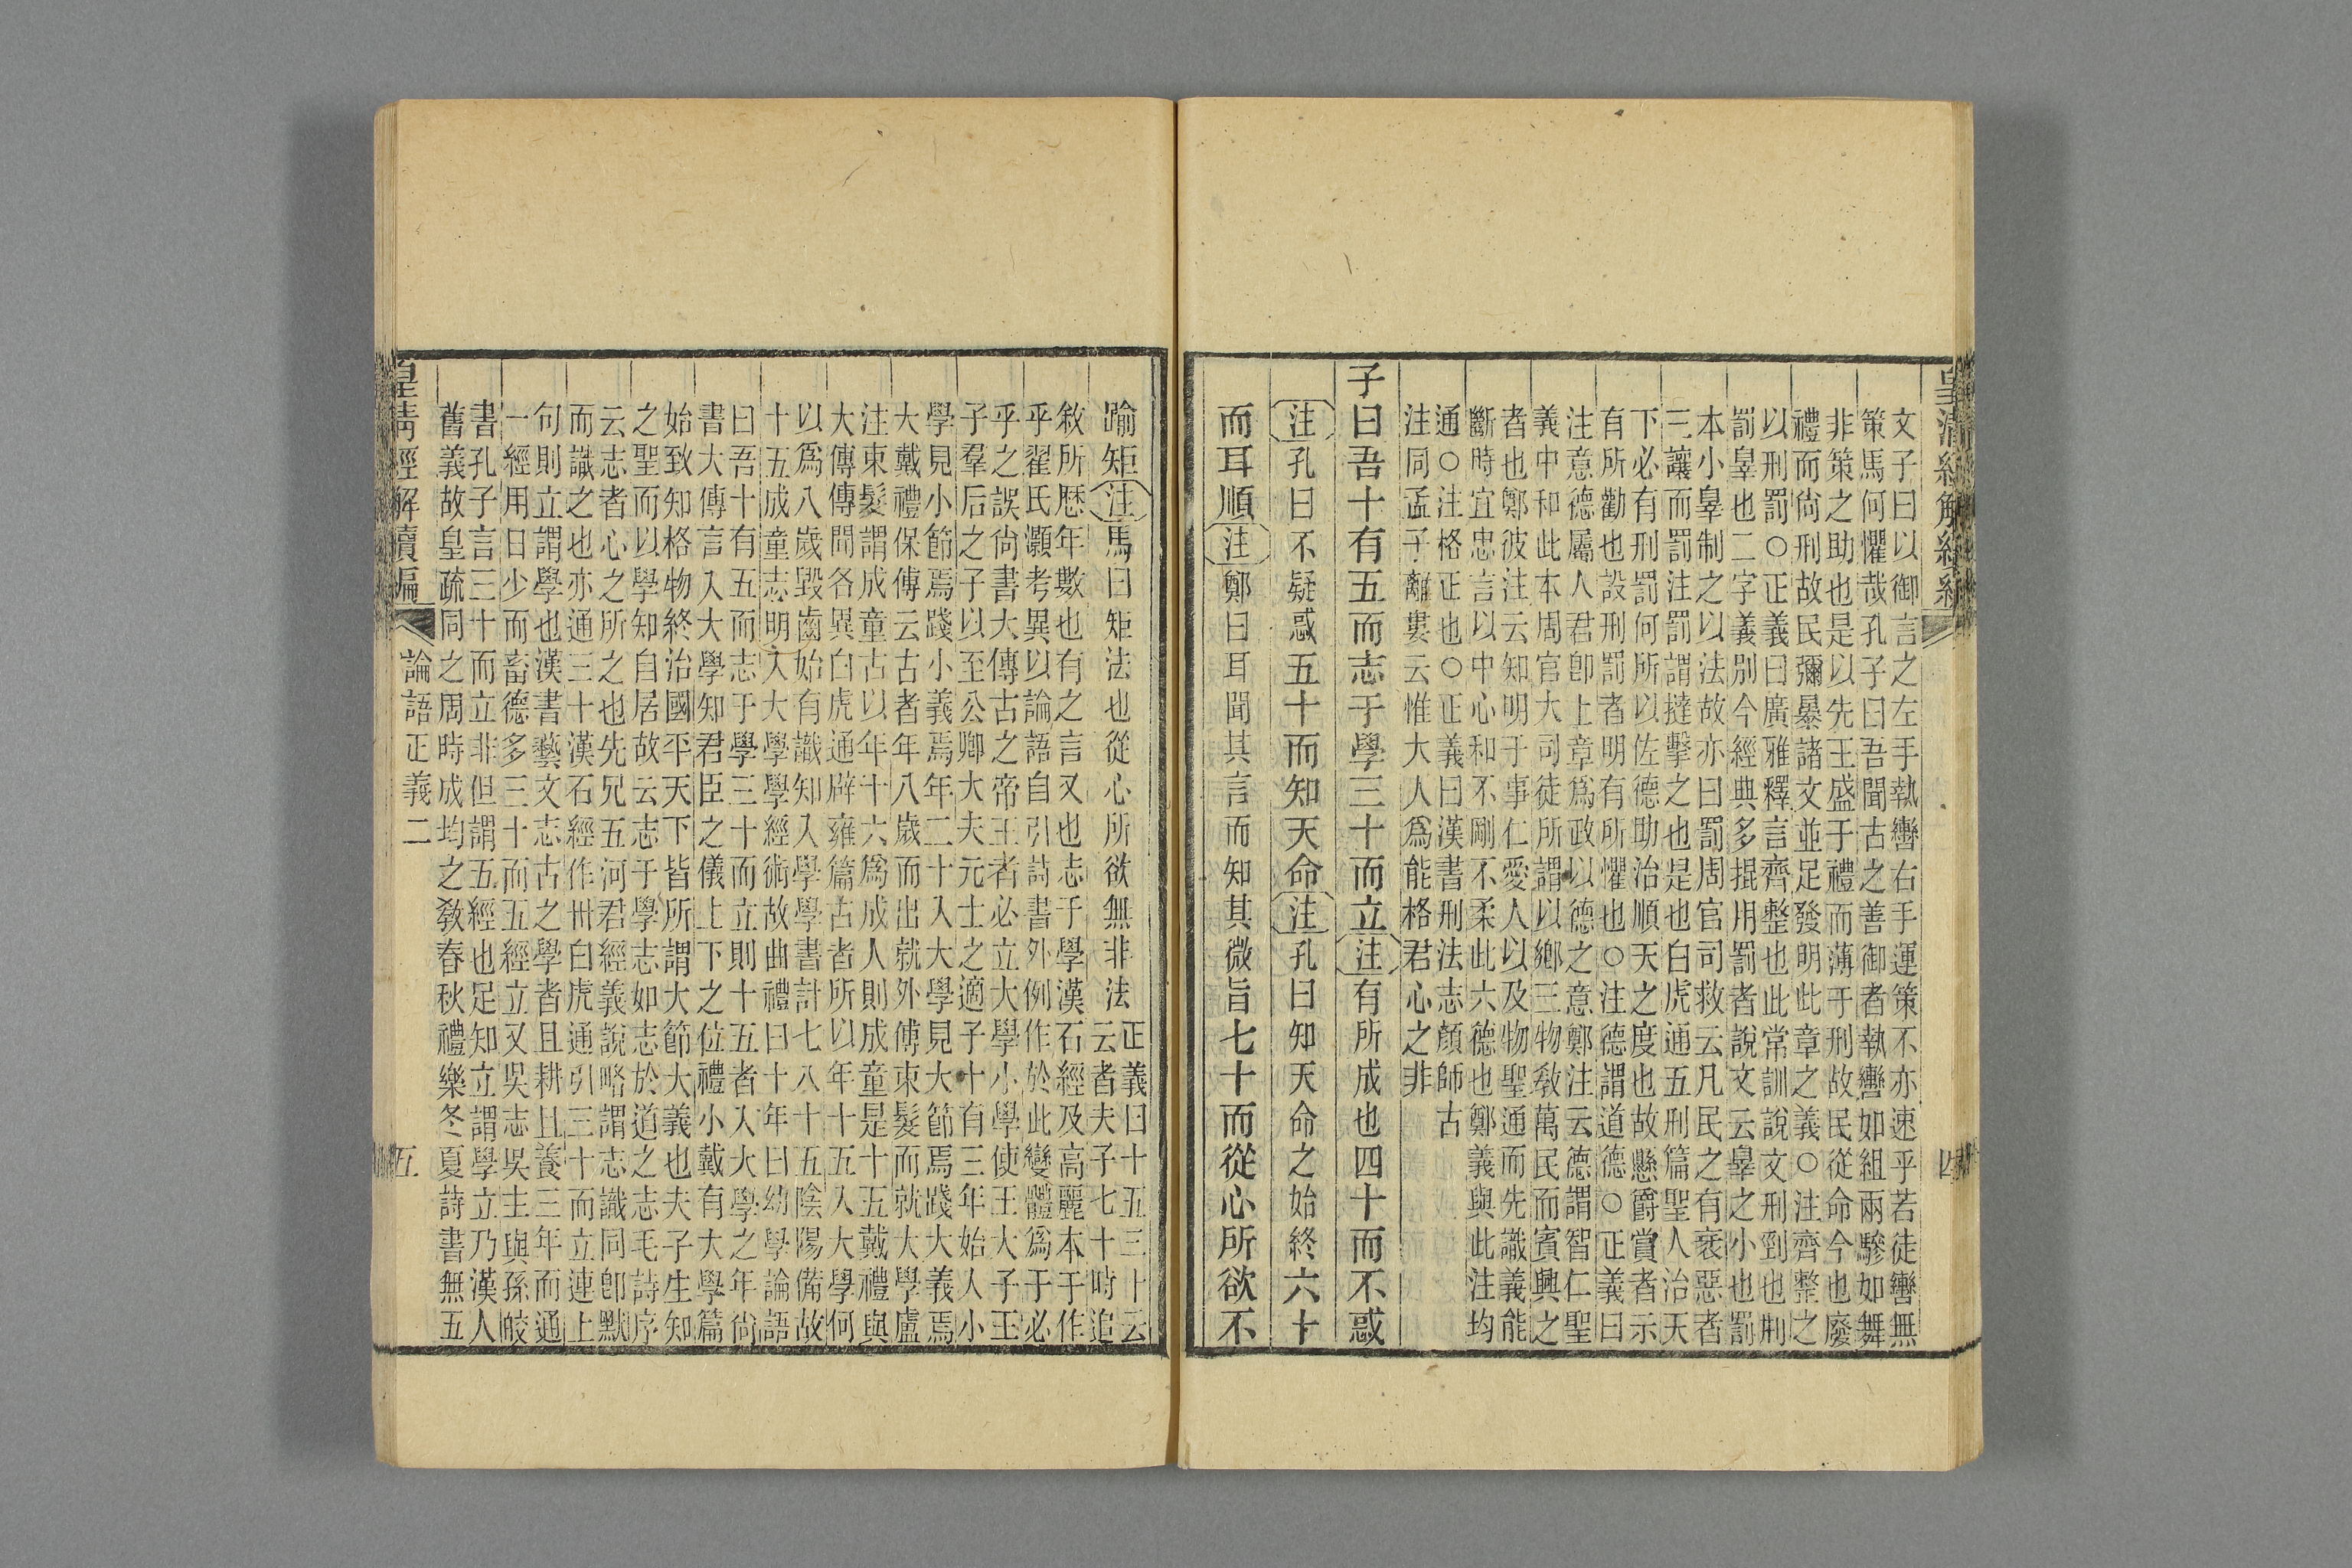 文子曰以御言之左手執轡右手運策不亦速乎若徒轡無
策馬何懼哉孔子曰吾聞古之善御者執轡如組兩驂如舞
非策之助也是以先王盛于禮而薄于刑故民從命今也廢
禮而尙刑故民彌暴諸文並足發明此章之義○注齊整之
以刑罰○正義曰廣雅釋言齊整也此常訓說文刑剄也㓝
罰辠也二字義別今經典多掍用罰者說文云辠之小也罰
本小辠制之以法故亦曰罰周官司救云凡民之有衺惡者
三讓而罰注罰謂撻擊之也是也白虎通五刑篇聖人治天
下必有刑罰何所以佐德助治順天之度也故懸爵賞者示
有所勸也設刑罰者明有所懼也○注德謂道德○正義曰
注意德屬人君卽上章爲政以德之意鄭注云德謂智仁聖
義中和此本周官大司徒所謂以鄉三物敎萬民而賓興之
者也鄭彼注云知明于事仁愛人以及物聖通而先識義能
斷時宜忠言以中心和不剛不柔此六德也鄭義與此注均
通○注格正也○正義曰漢書刑法志顏師古
注同孟子離婁云惟大人爲能格君心之非
子曰吾十有五而志于學三十而立注有所成也四十而不惑
注孔曰不疑惑五十而知天命注孔曰知天命之始終六十
而耳順注鄭曰耳聞其言而知其微旨七十而從心所欲不
踰矩注馬曰矩法也從心所欲無非法正義曰十五三十云
云者夫子七十時追
敘所歷年數也有之言又也志于學漢石經及高麗本于作
乎翟氏灝考異以論語自引詩書外例作於此變體爲于必
乎之誤尙書大傳古之帝王者必立大學小學使王大子王
子羣后之子以至公卿大夫元士之適子十有三年始人小
學見小節焉踐小義焉年二十入大學見大節焉踐大義焉
大戴禮保傅云古者年八歲而出就外傅束髮而就大學盧
注束髮謂成童古以年十六爲成人則成童是十五戴禮與
大傳傳聞各異白虎通辟雍篇古者所以年十五入大學何
以爲八歲毀齒始有識知入學學書計七八十五陰陽備故
十五成童志明入大學學經術故曲禮曰十年曰幼學論語
曰吾十有五而志于學三十而立則十五者入大學之年尙
書大傳言入大學知君臣之儀上下之位禮小戴有大學篇
始致知格物終治國平天下皆所謂大節大義也夫子生知
之聖而以學知自居故云志于學志如志於道之志毛詩序
云志者心之所之也先兄五河君經義說略謂志識同卽默
而識之也亦通三十漢石經作卅白虎通引三十而立連上
句則立謂學也漢書藝文志古之學者且耕且養三年而通
一經用日少而畜德多三十而五經立又吳志吳主與孫皎
書孔子言三十而立非但謂五經也足知立謂學立乃漢人
舊義故皇疏同之周時成均之敎春秋禮樂冬夏詩書無五
皇淸經解續編 論語正義二 五